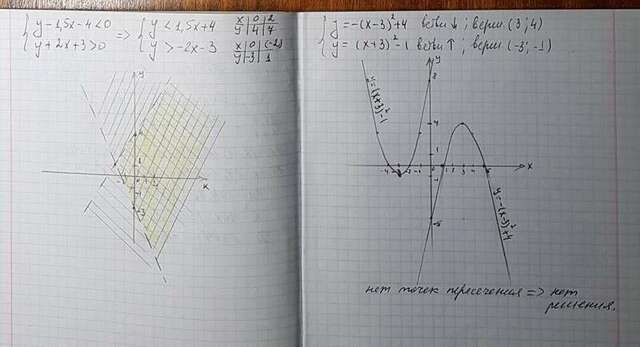 { y - 1,5x - 4 < 0
{ y + 2x + 3 > 0
=> { y < 1,5x + 4
{ y > -2x - 3
x | 0 | 2
y | 4 | 7
x | 0 | (-2)
y | -3 | 1
y
x
{ y = -(x-3)² + 4 ветви ↓ ; верш (3; 4)
{ y = (x+3)² - 1 ветви ↑ ; верш (-3; -1)
y = (x+3)² - 1
y
8
4
1
-4
-1
1
2
3
4
5
x
-1
-5
y = -(x-3)² + 4
нет точек пересечения => нет
решения.